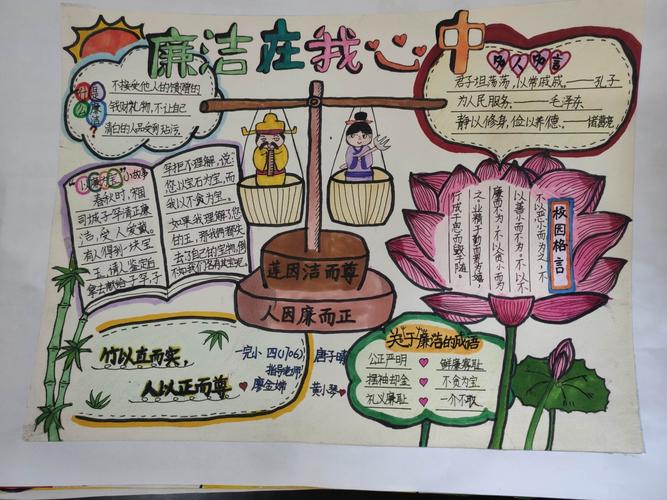 廉洁在我心中
什么是廉洁?
不接受他人的馈赠的
钱财礼物,不让自己
清白的人品受到玷污。
名人名言
君子坦荡荡,以常戚戚。——孔子
为人民服务。——毛泽东
静以修身,俭以养德。——诸葛亮
小故事
春秋时,宋国
司城子罕清正廉
洁,受人爱戴。
有人得到一块宝
玉,请人鉴定后
拿去献给子罕,子
罕拒不理解,说:
您以宝石为宝,而
我以不贪为宝。
如果我理解了您
的玉,那我们都失
去了自己的宝物,倒
不如我们各有其宝呢。
莲因洁而尊
人因廉而正
校园格言
不以恶小而为之,不
以善小而不为,不以不
廉而不为,不以贪小而为
之,业精于勤荒于嬉,
行成于思而毁于随。
竹以直而实,
人以正而尊
一完小 四(1/06) 唐子晴
指导老师
廖金娣 黄小琴
关于廉洁的成语
公正严明 鲜廉寡耻
摆袖却金 不贪为宝
礼义廉耻 一介不取